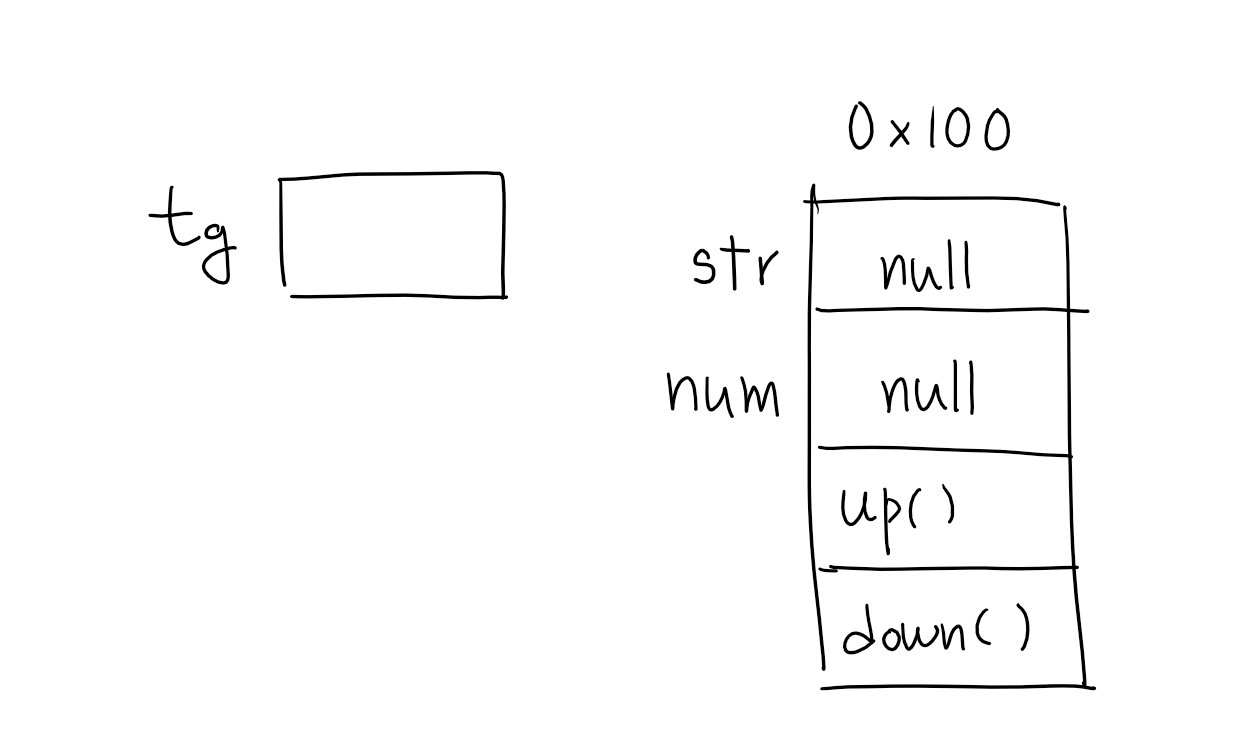 0x100
tg
str null
num null
up()
down()